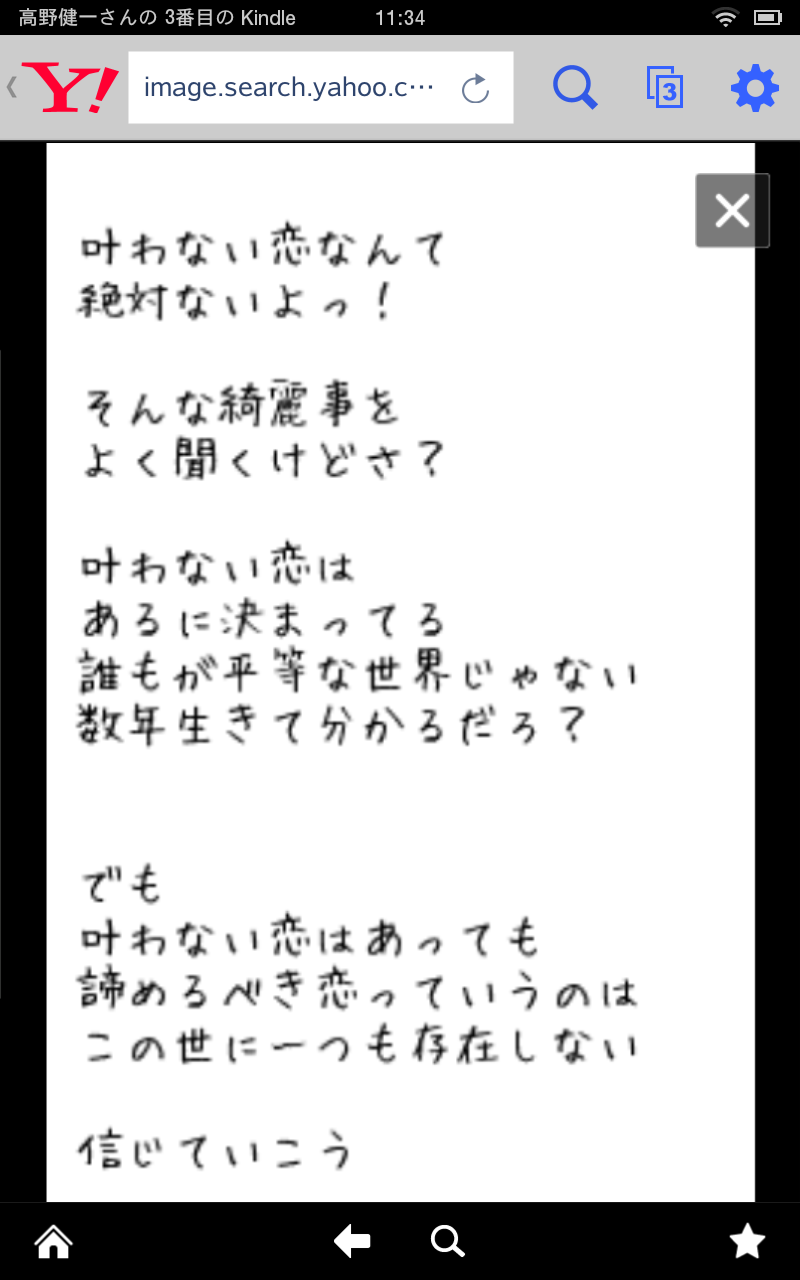 高野健一さんの 3番目の Kindle
11:34
Y!
image.search.yahoo.c…
3
叶わない恋なんて
絶対ないよっ！
そんな綺麗事を
よく聞くけどさ？
叶わない恋は
あるに決まってる
誰もが平等な世界じゃない
数年生きて分かるだろ？
でも
叶わない恋はあっても
諦めるべき恋っていうのは
この世に一つも存在しない
信じていこう